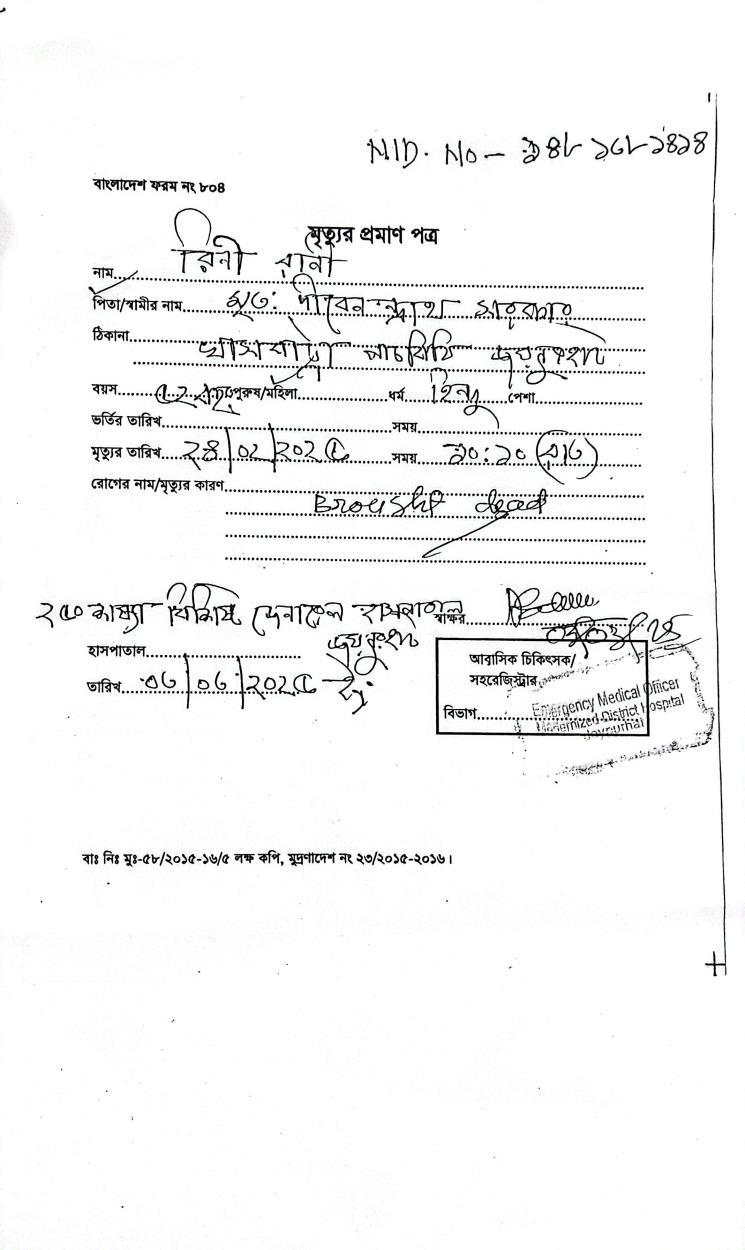 NID. No -
বাংলাদেশ ফরম নং ৮০৪
মৃত্যুর প্রমাণ পত্র
নাম রিনী রানী
পিতা/স্বামীর নাম মৃত: সরকার
ঠিকানা পাঁচবিবি জয়পুরহাট
বয়স পুরুষ/মহিলা ধর্ম হিন্দু পেশা
ভর্তির তারিখ সময়
মৃত্যুর তারিখ ২৪/০২/২০২৫ সময় ১০:১০ (রাত)
রোগের নাম/মৃত্যুর কারণ
Brought dead
২৫০ শয্যা বিশিষ্ট জেনারেল হাসপাতাল স্বাক্ষর
হাসপাতাল জয়পুরহাট
তারিখ ০৬/০৬/২০২৫ ইং
আবাসিক চিকিৎসক/
সহরেজিস্ট্রার
বিভাগ
Emergency Medical Officer
Modernized District Hospital
Joypurhat
বাঃ নিঃ মুঃ-৫৮/২০১৫-১৬/৫ লক্ষ কপি, মুদ্রণাদেশ নং ২৩/২০১৫-২০১৬।